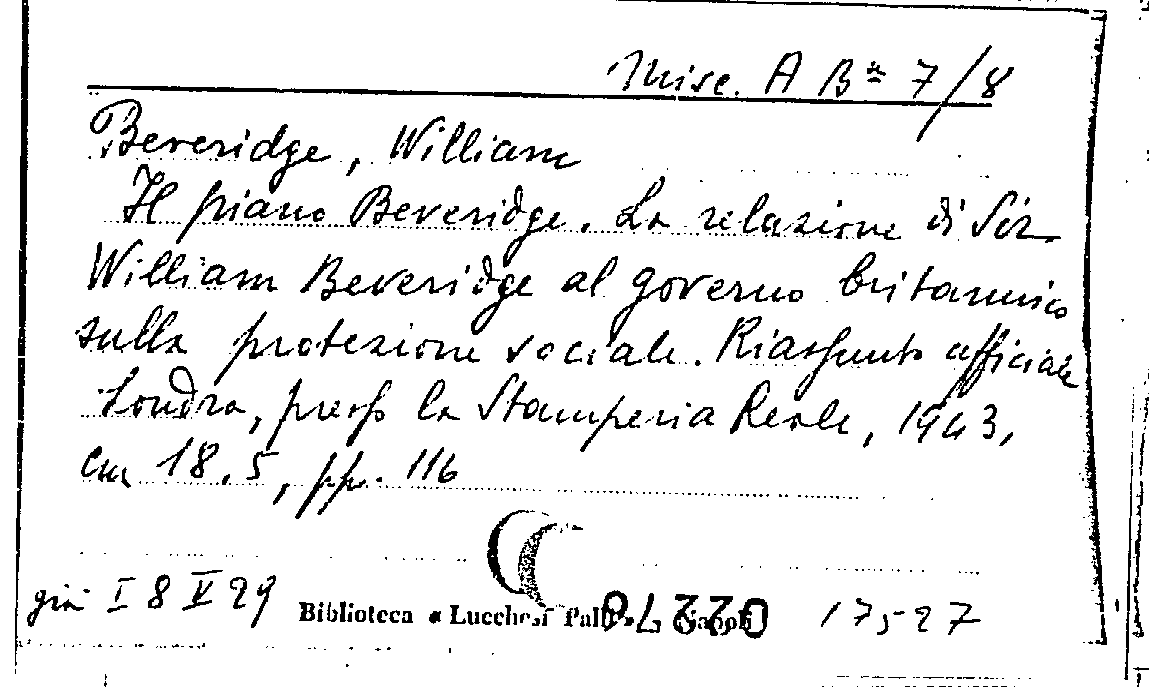 Misc. A Bª 7/8
Beveridge, William
Il piano Beveridge. La relazione di Sir
William Beveridge al governo britannico
sulla protezione sociale. Riassunto ufficiale
Londra, presso la Stamperia Reale, 1943,
cm 18.5, pp. 116
già I 8 V 29 Biblioteca « Lucchesi Palli » Napoli 17527